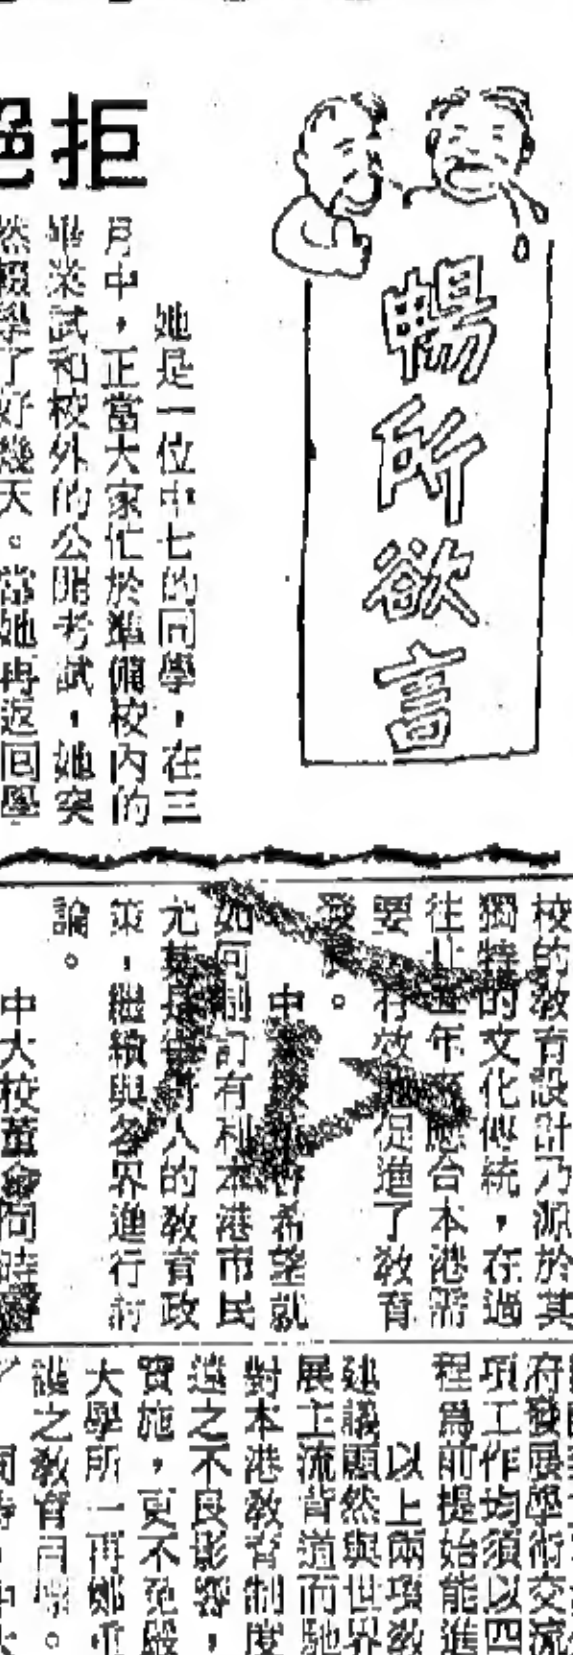 暢所欲言
拒絕
她是一位中七的同學，在三
月中，正當大家忙於準備校內的
畢業試和校外的公開考試，她突
然輟學了好幾天。當她再返回學
校的教育設計乃源於其
獨特的文化傳統，在過
往廿
年
合本港需
要
有效
促進了教育
發
。
中
希望就
如何制訂有利本港市民
尤其是
人的教育政
策，繼續與各界進行討
論。
中大校董會同時
府發展學術交流
項工作均須以四
程爲前提始能進
以上兩項
建議顯然與世界
展主流背道而馳
對本港教育制度
遠之不良影響，
實施，更不免
大學所一再鄭重
護之教育目標。
同時，中大